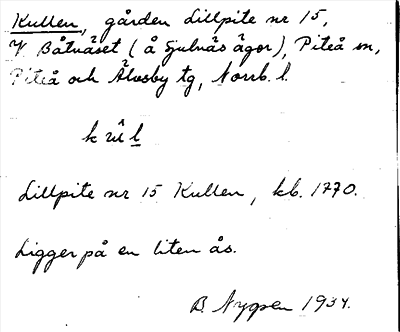 Kullen, gården Lillpite nr 15,
V. Båtnäset (å Sjulnäs ägor), Piteå sn,
Piteå och Älvsby tg, Norrb. l.
Lillpite nr 15 Kullen, kb. 1770.
Ligger på en liten ås.
B. Nygren 1934.